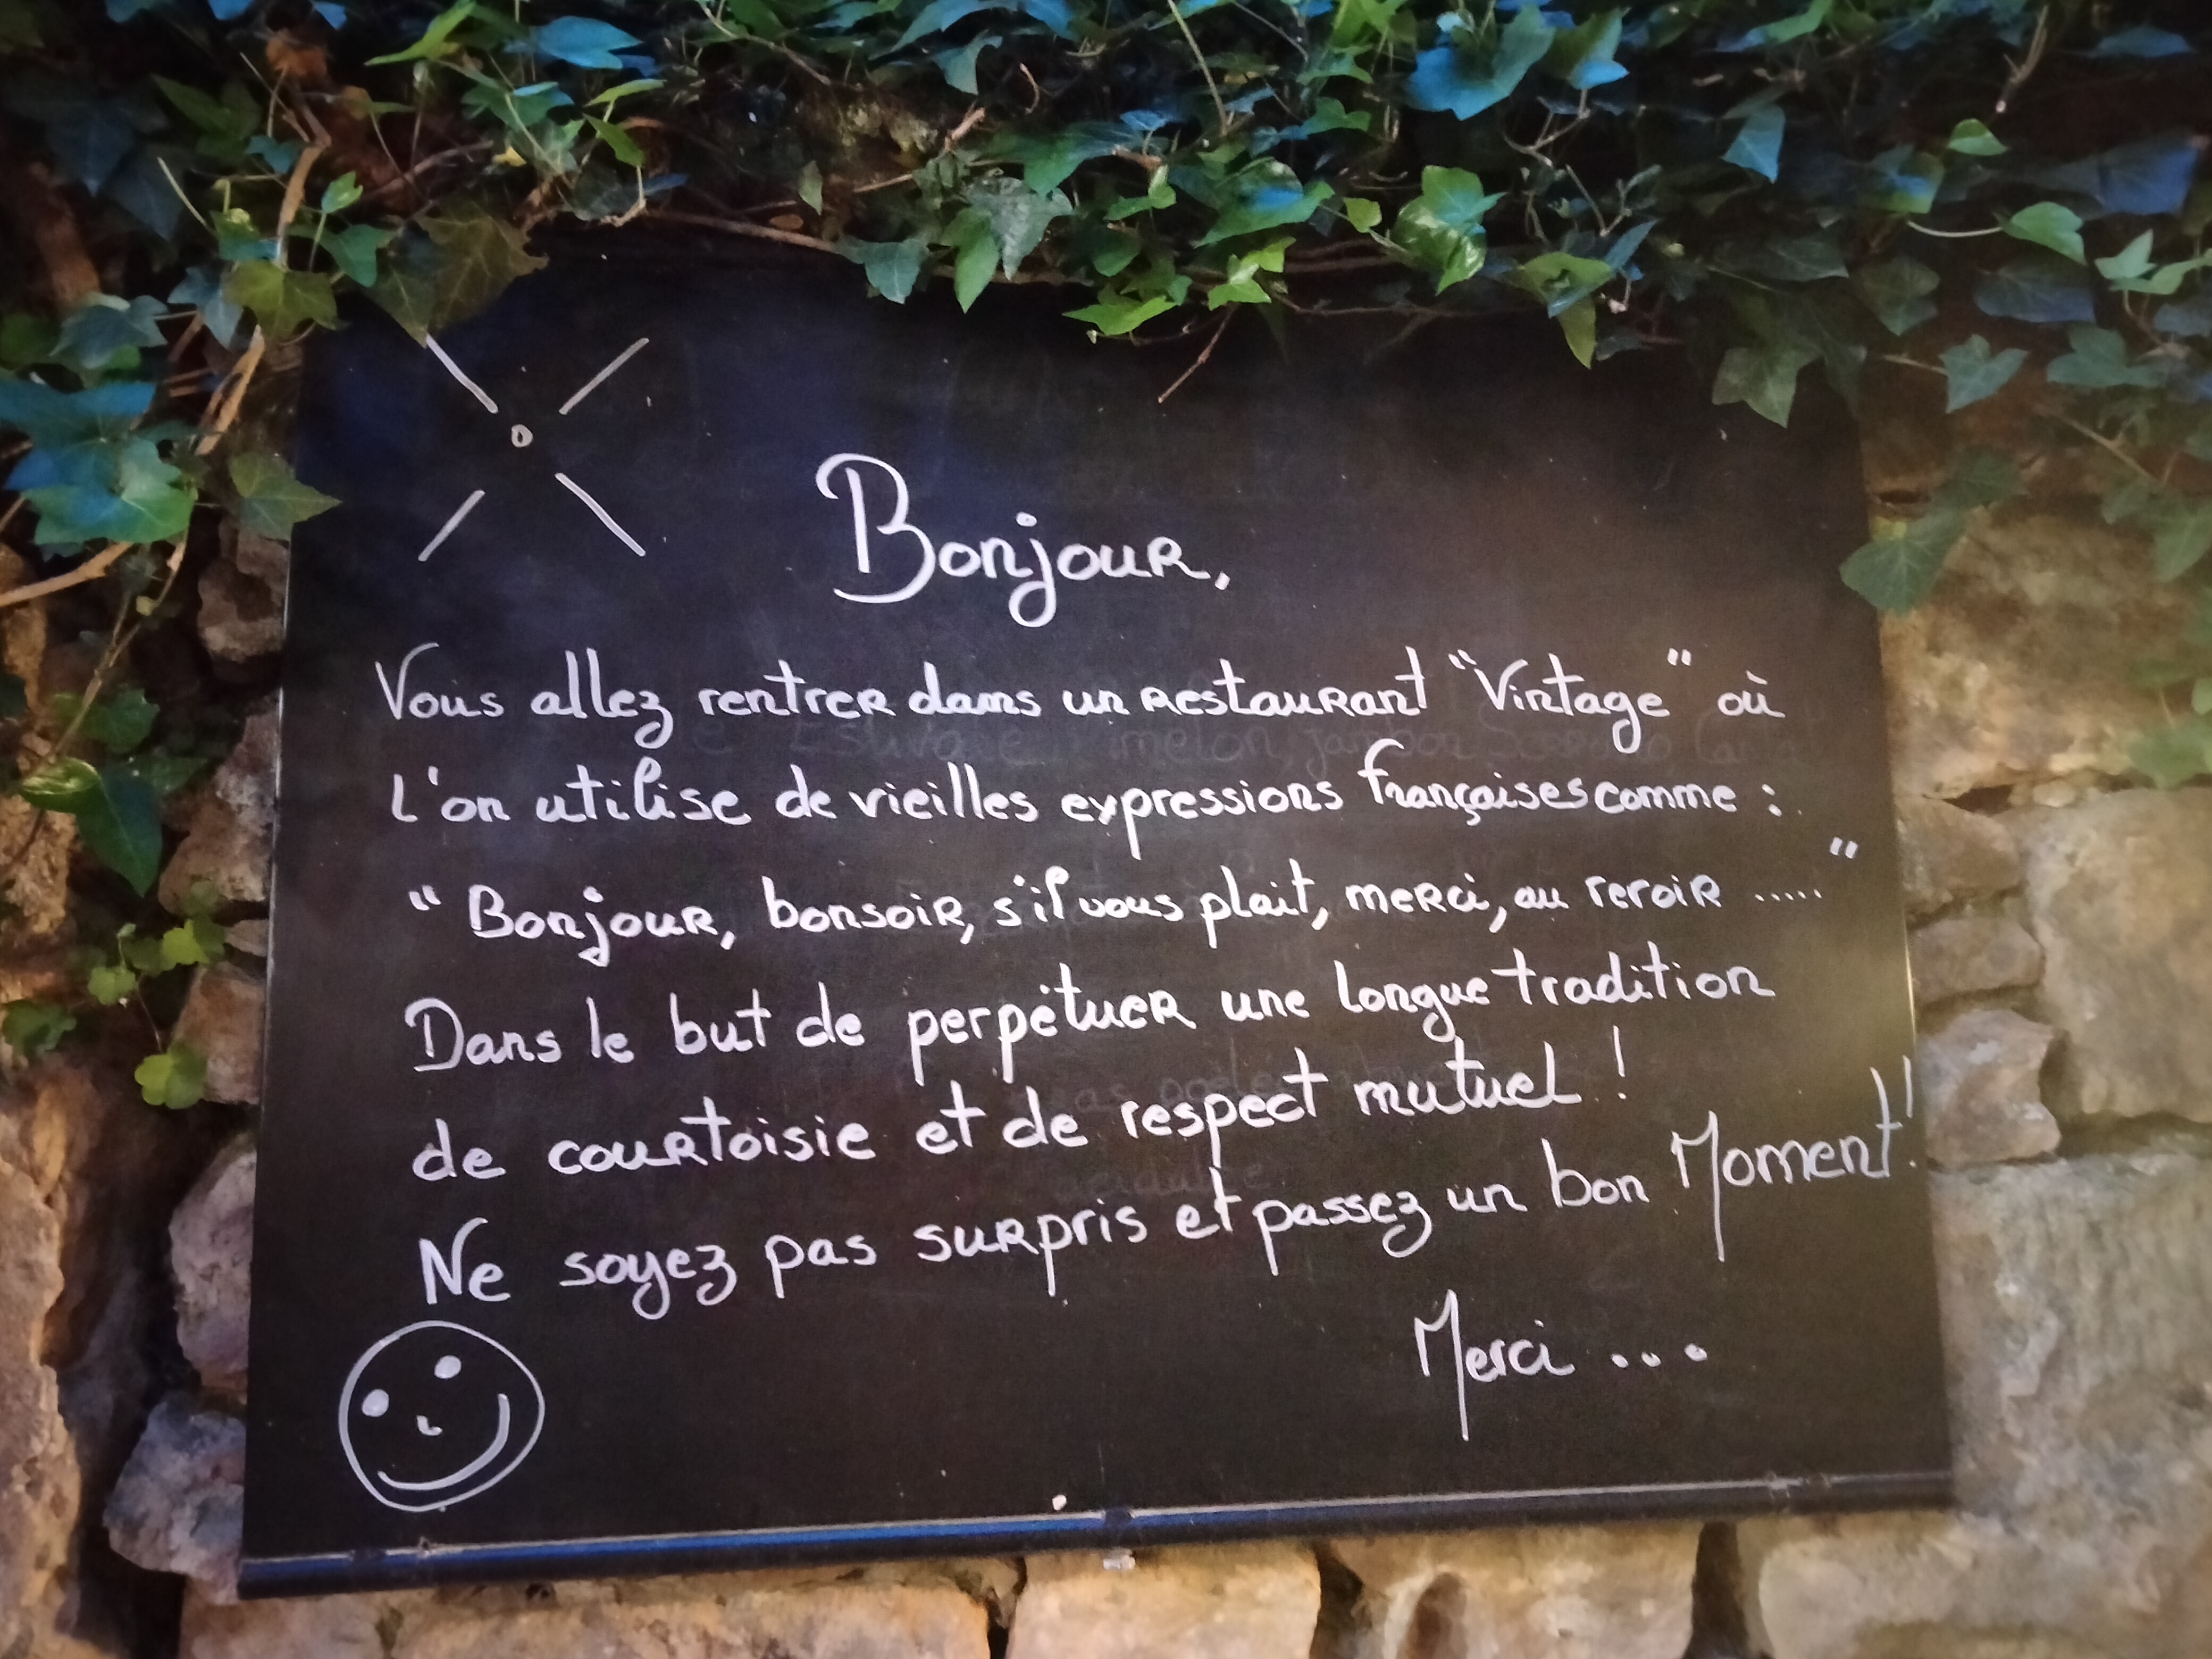 Bonjour,
Vous allez rentrer dans un restaurant "Vintage" où
l'on utilise de vieilles expressions françaises comme :
"Bonjour, bonsoir, s'il vous plait, merci, au revoir ....."
Dans le but de perpétuer une longue tradition
de courtoisie et de respect mutuel !
Ne soyez pas surpris et passez un bon Moment !
Merci ...